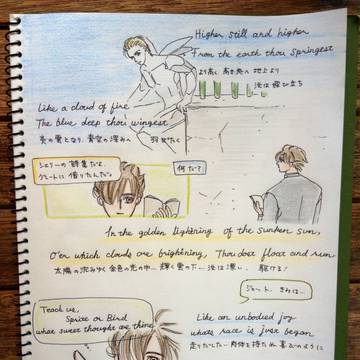 Higher still and higher
From the earth thou springest
より高く 高き処へ 地上より
汝は飛び立ち
Like a cloud of fire
The blue deep thou wingest
炎の雲となり 青空の深みへ 羽ばたく
シェリーの詩集だよ
借りたんだ
何だ?
In the golden lightning of the sunken sun,
O'er which clouds are brightning, Thou dost float and run
太陽の沈みゆく金色の光の中… 輝く雲の下… 汝は漂い… 駆ける!
Teach us,
Sprite or Bird
what sweet thought are thine
きみは…
Like an unbodied joy
whose race is just began
走りだした… 肉体を持たぬ 喜びのように